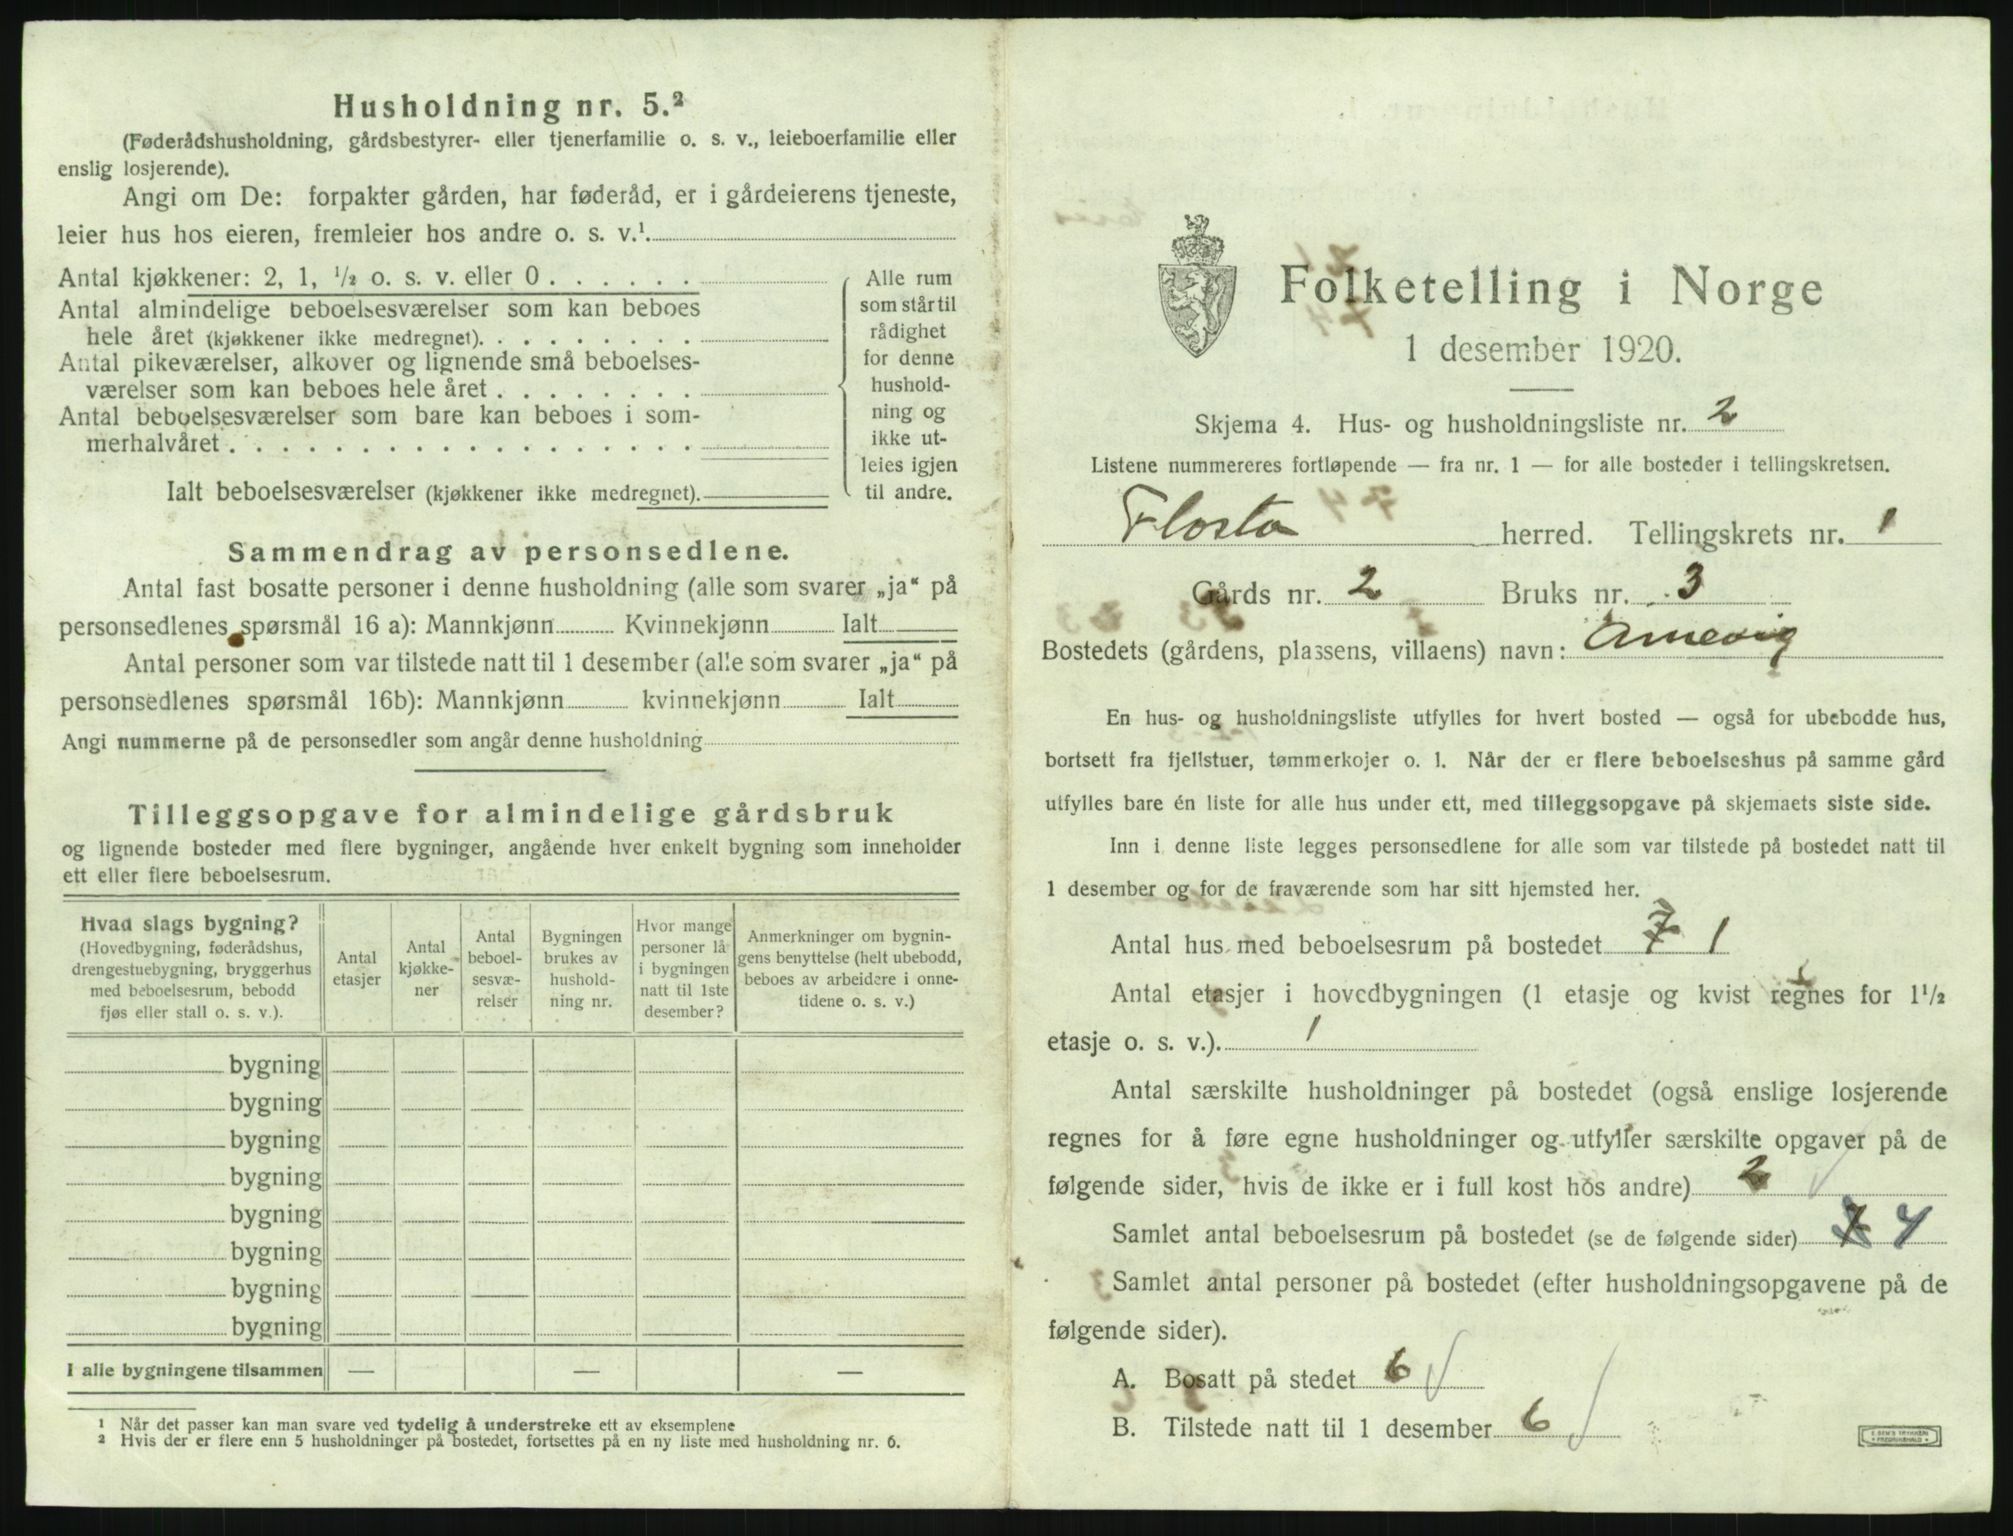 Husholdning nr. 5.²
(Føderådshusholdning, gårdsbestyrer- eller tjenerfamilie o. s. v., leieboerfamilie eller
enslig losjerende).
Angi om De: forpakter gården, har føderåd, er i gårdeierens tjeneste,
leier hus hos eieren, fremleier hos andre o. s. v.¹
Antal kjøkkener: 2, 1, ½ o. s. v. eller 0
Antal almindelige beboelsesværelser som kan beboes
hele året (kjøkkener ikke medregnet)
Antal pikeværelser, alkover og lignende små beboelses-
værelser som kan beboes hele året
Antal beboelsesværelser som bare kan beboes i som-
merhalvåret
Ialt beboelsesværelser (kjøkkener ikke medregnet)
Alle rum
som står til
rådighet
for denne
hushold-
ning og
ikke ut-
leies igjen
til andre.
Sammendrag av personsedlene.
Antal fast bosatte personer i denne husholdning (alle som svarer „ja“ på
personsedlenes spørsmål 16 a): Mannkjønn Kvinnekjønn Ialt
Antal personer som var tilstede natt til 1 desember (alle som svarer „ja“ på
personsedlenes spørsmål 16b): Mannkjønn kvinnekjønn Ialt
Angi nummerne på de personsedler som angår denne husholdning
Tilleggsopgave for almindelige gårdsbruk
og lignende bosteder med flere bygninger, angående hver enkelt bygning som inneholder
ett eller flere beboelsesrum.
Hvad slags bygning?
(Hovedbygning, føderådshus,
drengestuebygning, bryggerhus
med beboelsesrum, bebodd
fjøs eller stall o. s. v.).
Antal
etasjer
Antal
kjøkke-
ner
Antal
beboel-
sesvæ-
relser
Bygningen
brukes av
hushold-
ning nr.
Hvor mange
personer lå
i bygningen
natt til 1ste
desember?
Anmerkninger om bygnin-
gens benyttelse (helt ubebodd,
beboes av arbeidere i onne-
tidene o. s. v.)
bygning
bygning
bygning
bygning
bygning
bygning
bygning
bygning
I alle bygningene tilsammen — — —
¹ Når det passer kan man svare ved tydelig å understreke ett av eksemplene
² Hvis der er flere enn 5 husholdninger på bostedet, fortsettes på en ny liste med husholdning nr. 6.
Folketelling i Norge
1 desember 1920.
Skjema 4. Hus- og husholdningsliste nr. 2
Listene nummereres fortløpende — fra nr. 1 — for alle bosteder i tellingskretsen.
Flosta herred. Tellingskrets nr. 1
Gårds nr. 2 Bruks nr. 3
Bostedets (gårdens, plassens, villaens) navn: Arnevig
En hus- og husholdningsliste utfylles for hvert bosted — også for ubebodde hus,
bortsett fra fjellstuer, tømmerkojer o. l. Når der er flere beboelseshus på samme gård
utfylles bare én liste for alle hus under ett, med tilleggsopgave på skjemaets siste side.
Inn i denne liste legges personsedlene for alle som var tilstede på bostedet natt til
1 desember og for de fraværende som har sitt hjemsted her.
Antal hus med beboelsesrum på bostedet 7 1
Antal etasjer i hovedbygningen (1 etasje og kvist regnes for 1½
etasje o. s. v.). 1
Antal særskilte husholdninger på bostedet (også enslige losjerende
regnes for å føre egne husholdninger og utfyller særskilte opgaver på de
følgende sider, hvis de ikke er i full kost hos andre) 2
Samlet antal beboelsesrum på bostedet (se de følgende sider) 7 4
Samlet antal personer på bostedet (efter husholdningsopgavene på de
følgende sider).
A. Bosatt på stedet 6
B. Tilstede natt til 1 desember 6